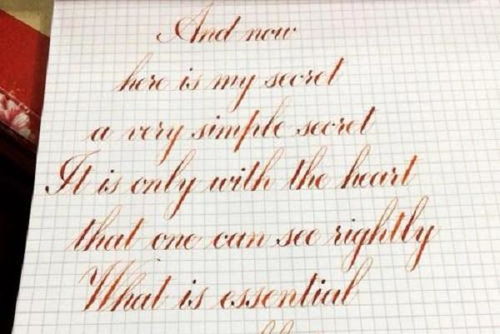 And now
here is my secret
a very simple secret
It is only with the heart
that one can see rightly
What is essential